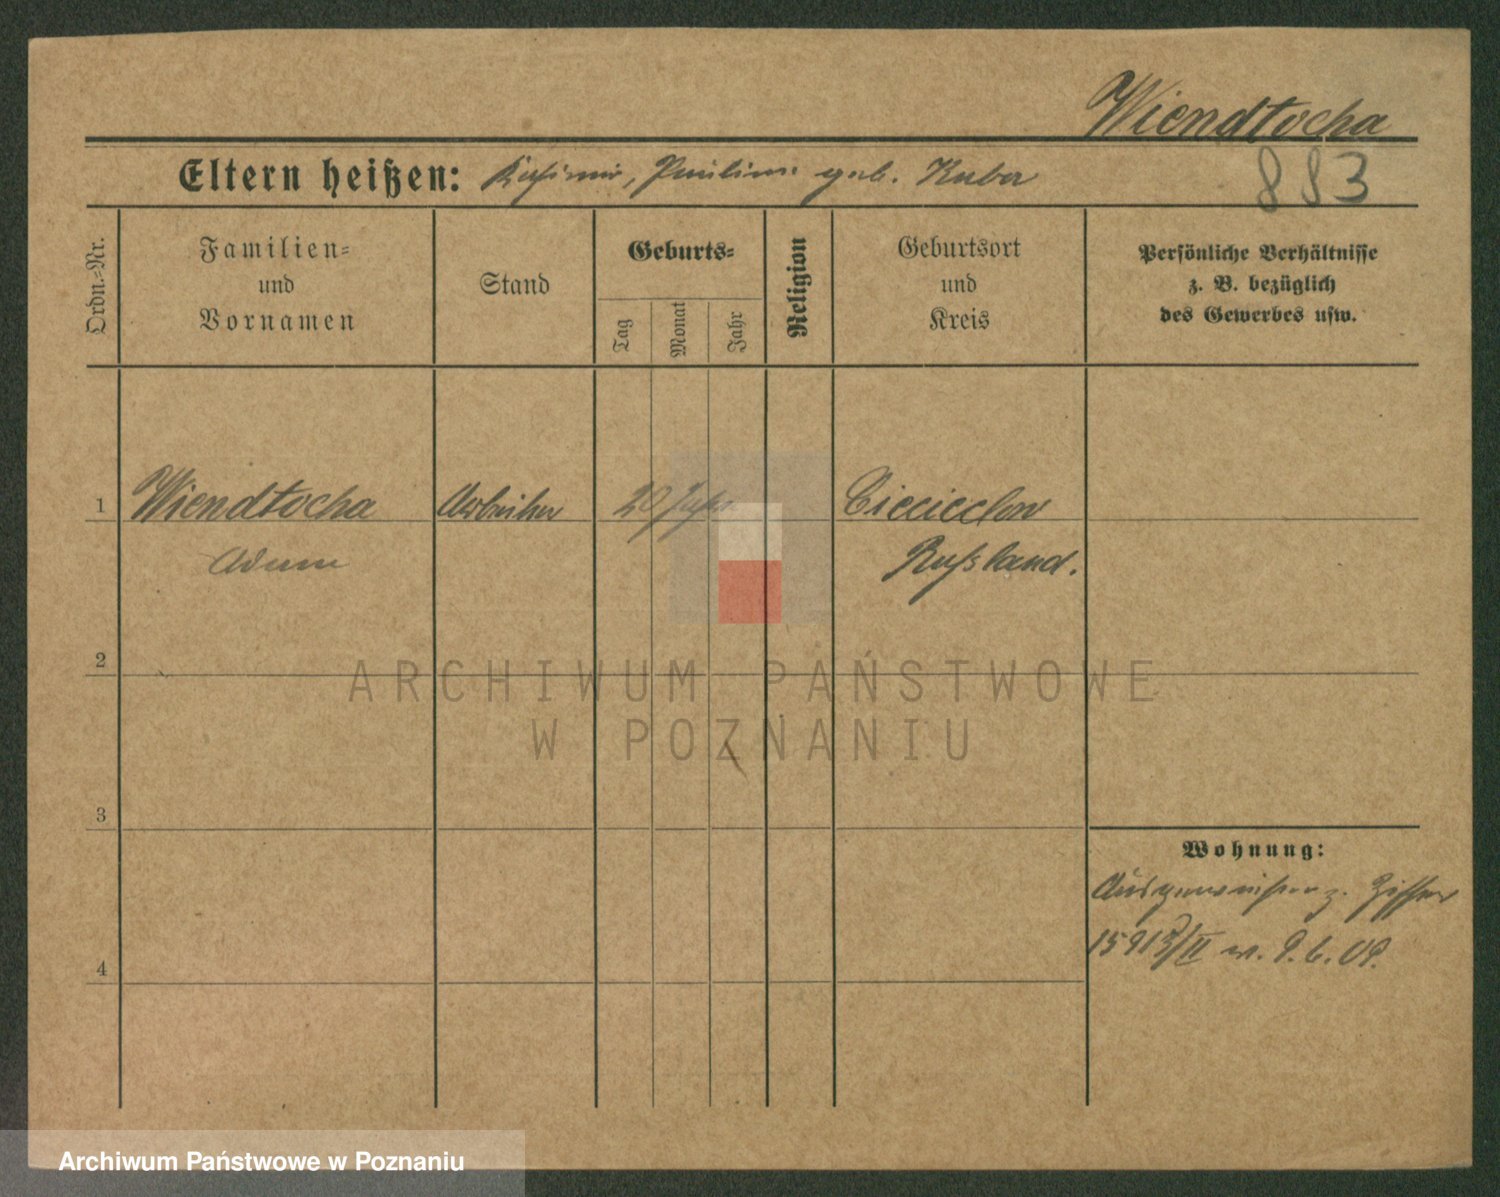 Wiendtocha
Eltern heißen: Kasimir, Paulina geb. Kuber
883
Ordn.=Nr.
Familien=
und
Vornamen
Stand
Geburts=
Tag
Monat
Jahr
Religion
Geburtsort
und
Kreis
Persönliche Verhältnisse
z. B. bezüglich
des Gewerbes usw.
1 Wiendtocha Arbeiter 20 Jahre
Adam
Russland.
2
ARCHIWUM PAŃSTWOWE
W POZNANIU
3
Wohnung:
Ausgewiesen z. Ziffer
v. 9.6.09.
4
Archiwum Państwowe w Poznaniu